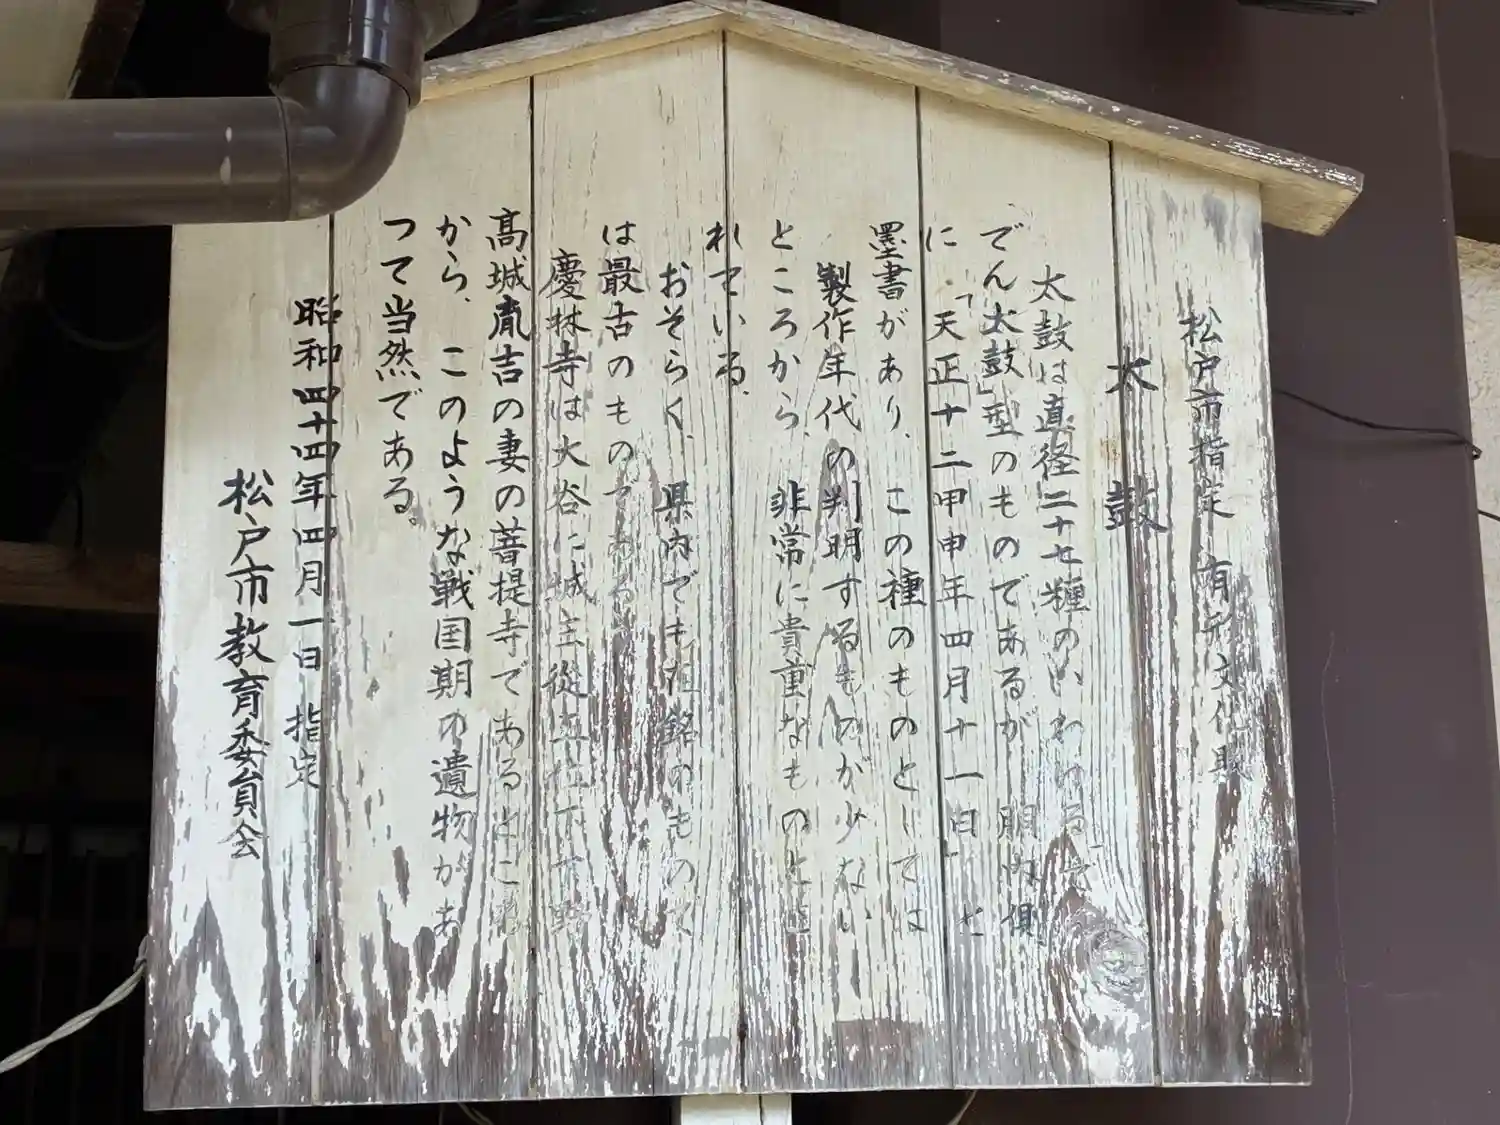 松戸市指定 有形文化財
太鼓
太鼓は直径二十七糎のいわゆる「
でん太鼓」型のものであるが 胴内側
に「天正十二甲申年四月十一日」と
墨書があり、この種のものとしては
製作年代の判明するものが少ない
ところから、非常に貴重なものと
れている。
おそらく、県内でも在銘のもので
は最古のものである。
慶林寺は大谷口城主
高城胤吉の妻の菩提寺であるところ
から、このような戦国期の遺物があ
つて当然である。
昭和四十四年四月一日 指定
松戸市教育委員会